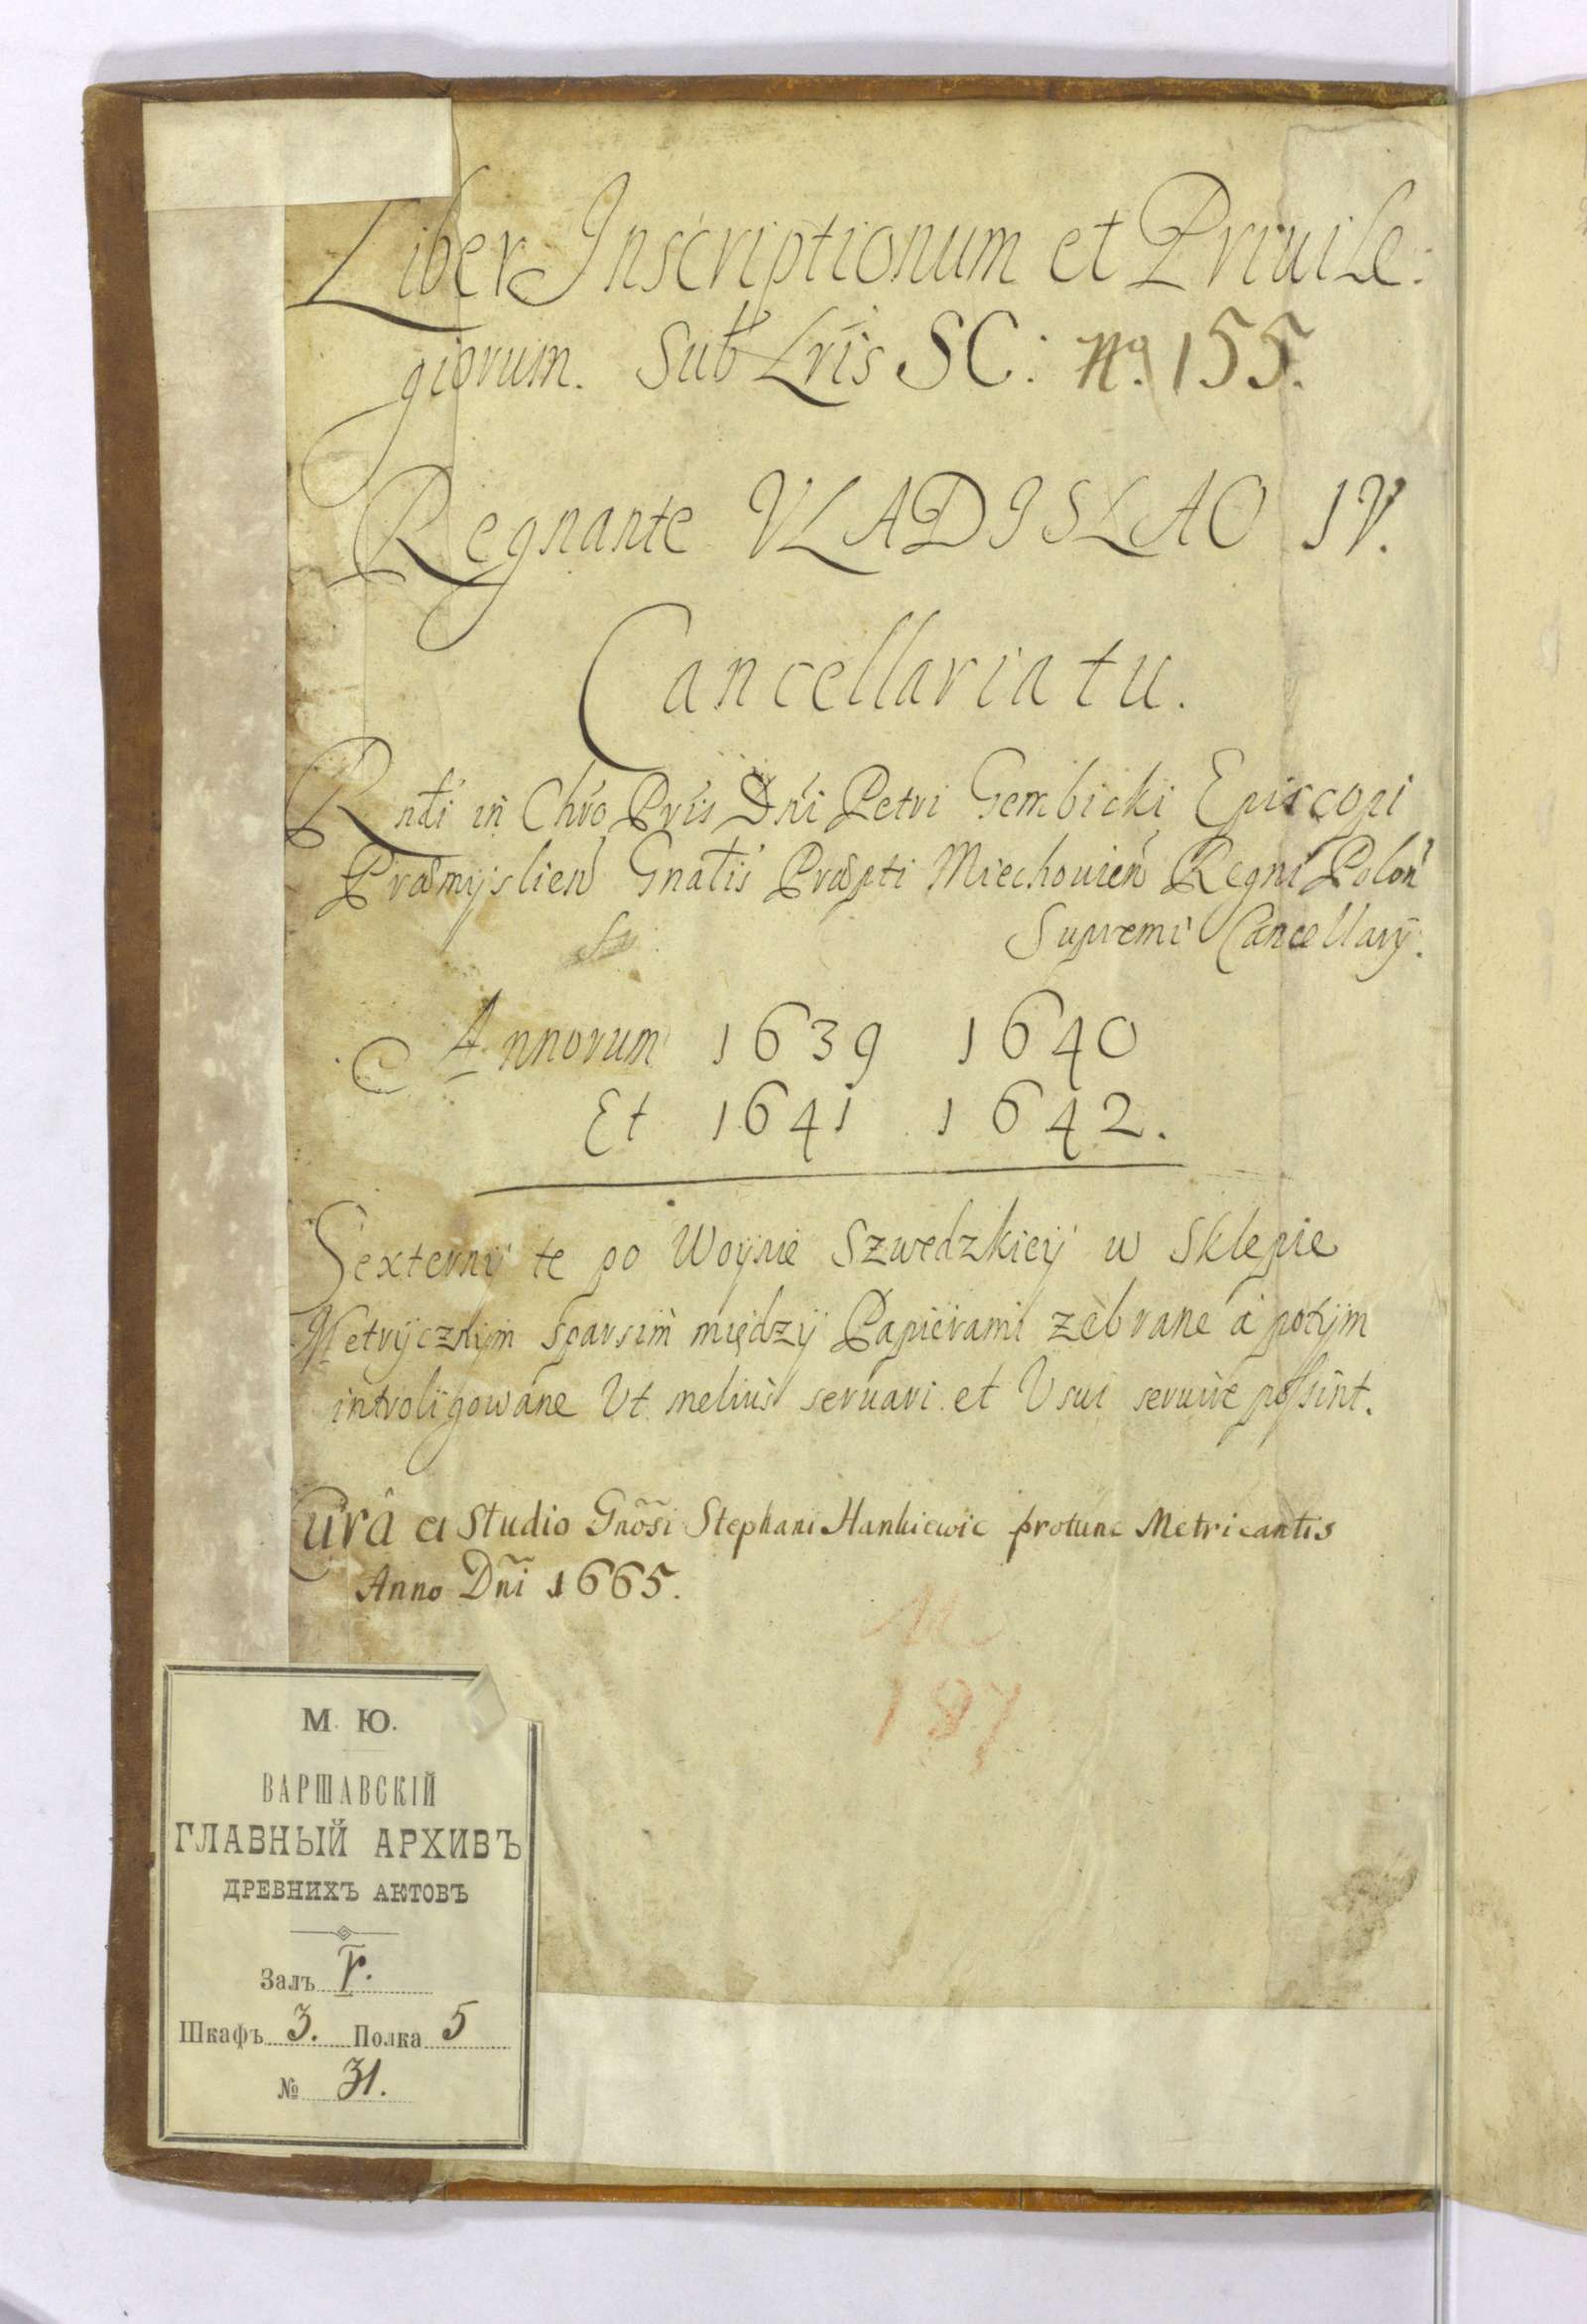 Liber Inscriptionum et Priuile:
giorum. Sub Lris SC: No. 155.
Regnante VLADISLAO IV.
Cancellariatu.
Rndi in Chro Pris Dni Petri Gembicki Episcopi
Præmyslien Gnalis Præpti Miechouien Regni Polon
Supremi Cancellarÿ.
Annorum 1639 1640
Et 1641 1642.
Sexterny te po Woynie Szwedzkiey w Sklepie
Metrycznym sparsim między Papierami zebrane a potym
introligowane Vt melius seruari et Vsui seruire possint.
Curâ et Studio Gnosi Stephani Hankiewic protunc Metricantis
Anno Dni 1665.
187
М. Ю.
ВАРШАВСКІЙ
ГЛАВНЫЙ АРХИВЪ
ДРЕВНИХЪ АКТОВЪ
Залъ V.
Шкафъ 3. Полка 5
№ 31.